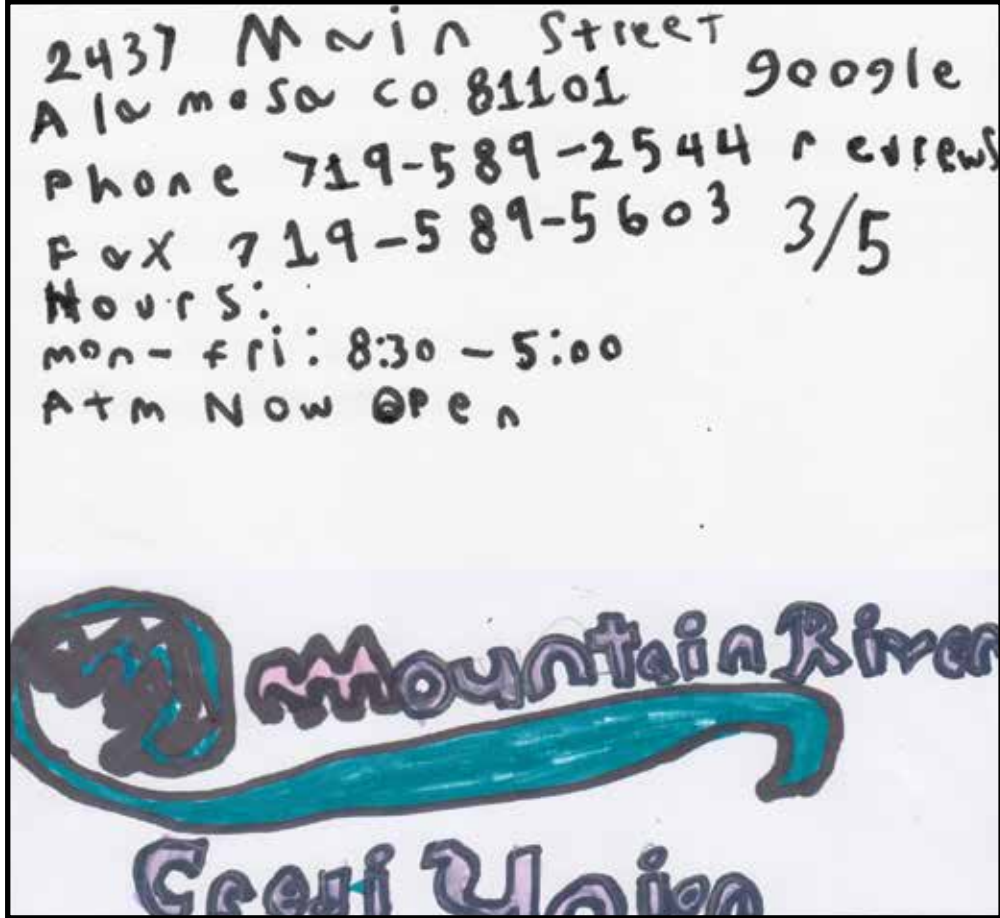 2437 Main Street
Alamosa co 81101
google
reviews
3/5
Phone 719-589-2544
Fax 719-589-5603
Hours:
mon-fri: 8:30 - 5:00
Atm Now Open
Mountain River
Credi Union